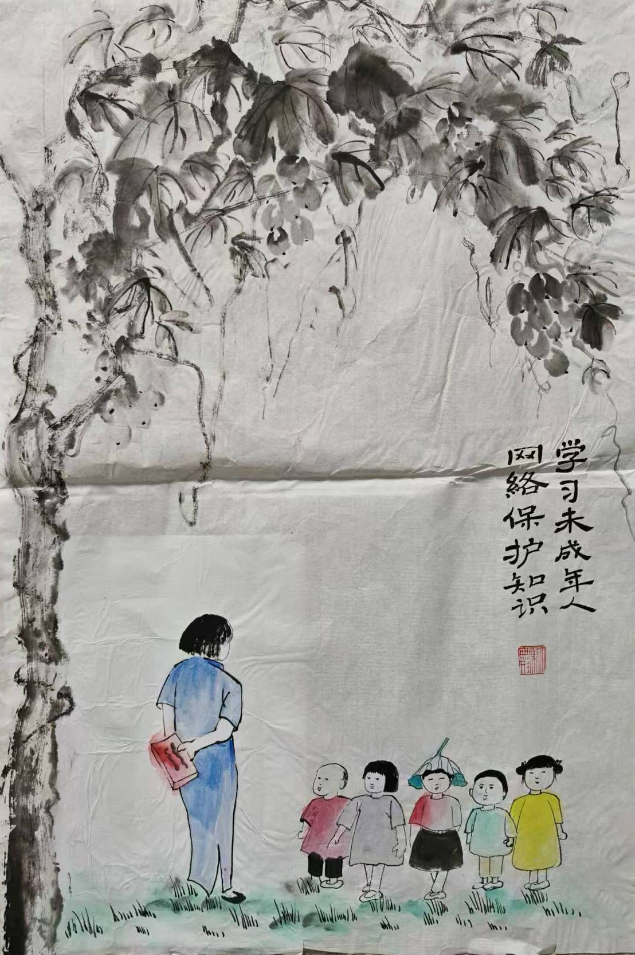 学习未成年人
网络保护知识